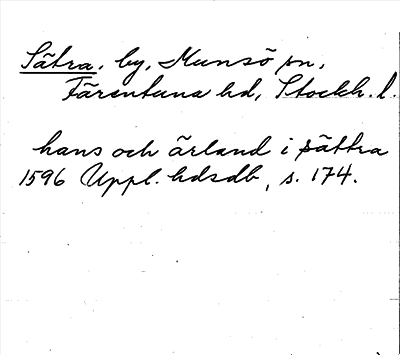 Sätra, by, Munsö sn,
Färentuna hd, Stockh. l.
hans och ärland i sättra
1596 Uppl. hdsdb, s. 174.